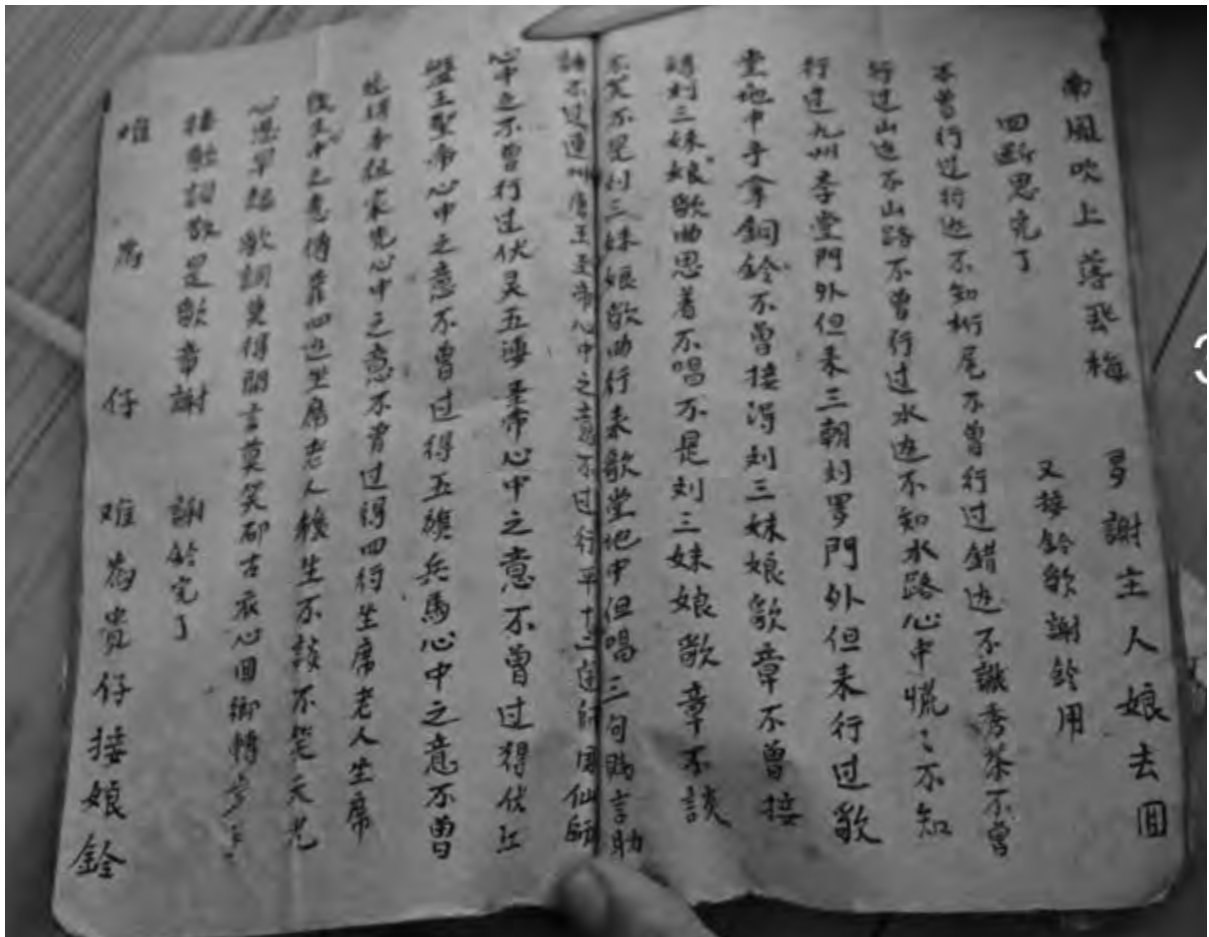 南風吹上落飛梅 多謝主人娘去囬
四断思完了 又接鈴歌謝鈴用
不曾行过行边不知桁尾不曾行过錯边不識秀茶不曾
行过山边不山路不曾行过水边不知水路心中慌〻不知
行过九州李堂門外但来三朝刘罗門外但来行过歌
堂地中手拿銅鈴不曾接得刘三妹娘歌章不曾接
得刘三妹娘歌曲思着不唱不是刘三妹娘歌章不談
不笑不是刘三妹娘歌曲行来歌堂地中但唱三句
不过連州唐王圣帝心中之意不过行平十二遊師
心中之不曾行过伏灵五海圣帝心中之意不曾过得伏江
盤王聖帝心中之意不曾过得五旗兵馬心中之意不曾
过得本位家先心中之意不曾过得四行坐席老人坐席
中之意傳靠四边坐席老人後生不談不笑天光
心思早起歌詞莫得閑言莫笑 古衣心囬鄉轉
接歌詞歌是歌章謝 謝鈴完了
难為仔 难為貴仔接娘鈴